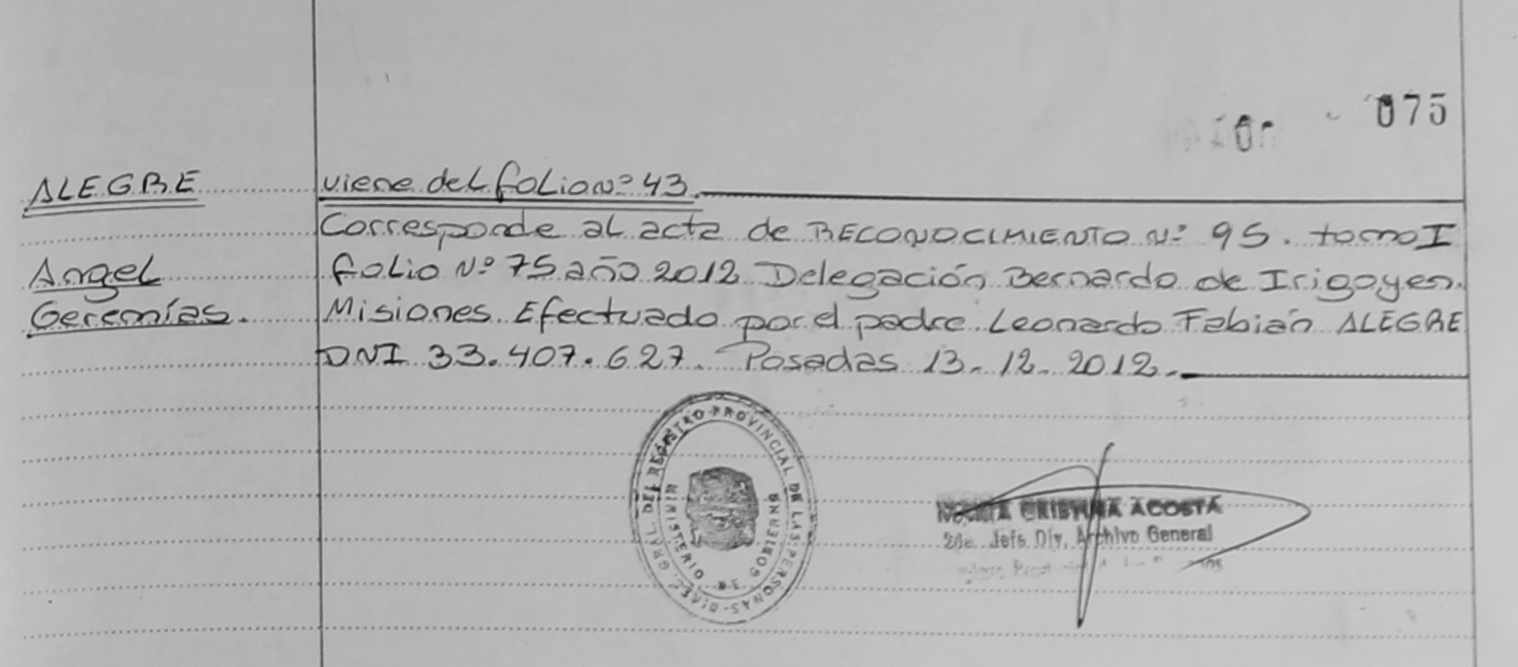 075
ALEGRE
viene del folio Nº 43.
Corresponde al acta de RECONOCIMIENTO Nº 95. tomo I
Angel
folio Nº 75 año 2012 Delegación Bernardo de Irigoyen.
Geremías.
Misiones. Efectuado por el padre Leonardo Fabián ALEGRE
DNI 33.407.627. Posadas 13.12.2012.
DIREC. GRAL. DEL REGISTRO PROVINCIAL DE LAS PERSONAS
MINISTERIO DE GOBIERNO
MARIA CRISTINA ACOSTA
2do. Jefe Div. Archivo General